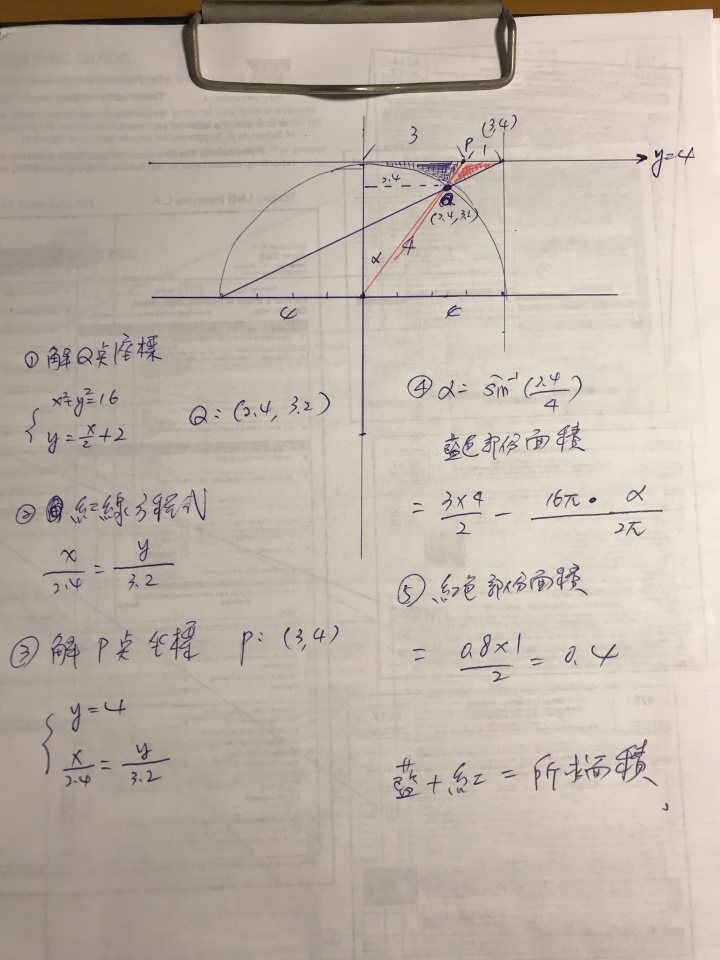 3
P
1
(3,4)
y=4
2.4
Q
(2.4, 3.2)
α
4
4
4
① 解Q点座標
x²+y²=16
y=x/2+2
Q=(2.4, 3.2)
② 紅線方程式
x/2.4 = y/3.2
③ 解P点坐標 P:(3,4)
y=4
x/2.4 = y/3.2
④ α= sin⁻¹(2.4/4)
藍色部份面積
= 3×4/2 - 16π・α/2π
⑤ 紅色部份面積
= 0.8×1/2 = 0.4
藍+紅=所求面積